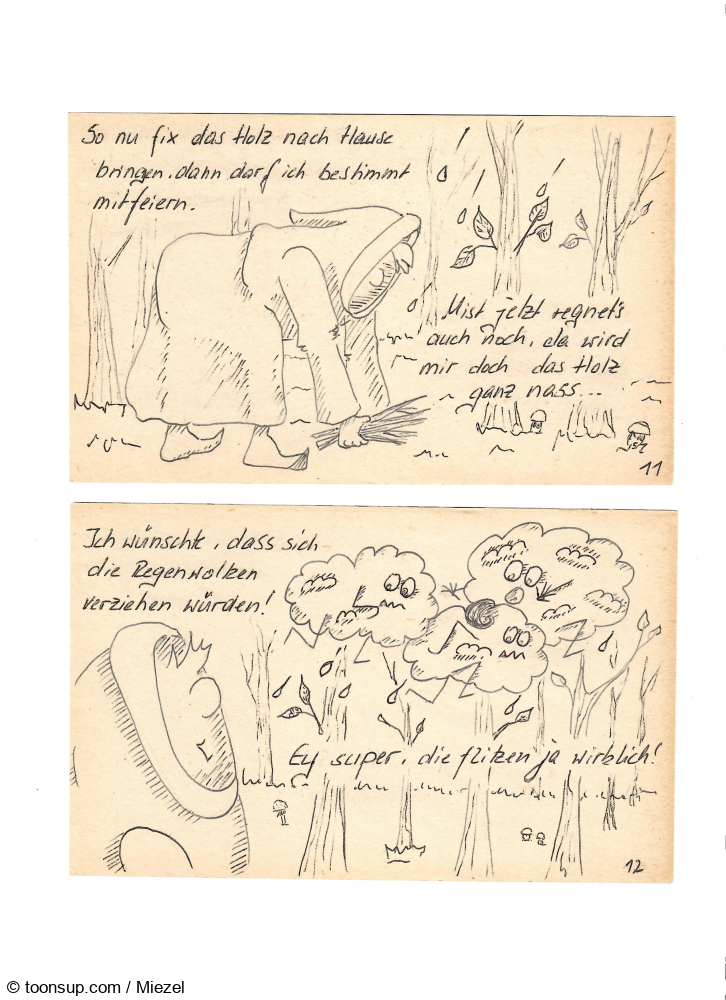 So nu fix das Holz nach Hause
bringen, dann darf ich bestimmt
mitfeiern.
Mist jetzt regnet's
auch noch, da wird
mir doch das Holz
ganz nass...
11
Ich wünschte, dass sich
die Regenwolken
verziehen würden!
Ey super, die flitzen ja wirklich!
12
© toonsup.com / Miezel